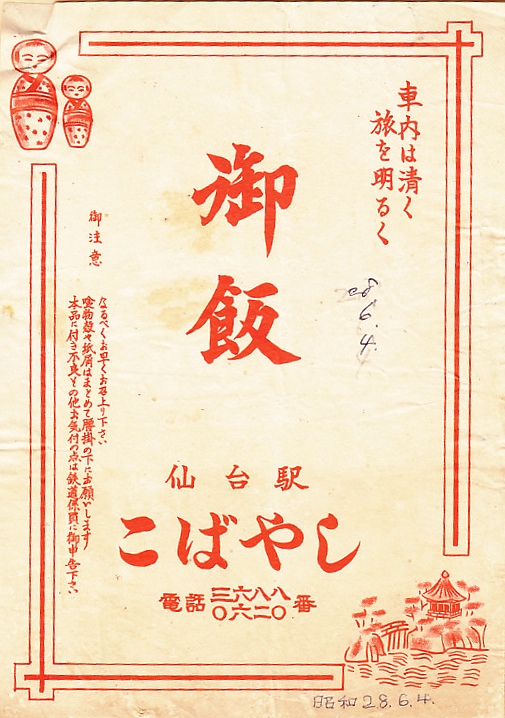 車内は清く
旅を明るく
御飯
28
6.
4.
御注意
なるべくお早くお召上り下さい
喰物殻や紙屑はまとめて腰掛の下にお願いします
本品に付き不良その他お気付の点は鉄道係員に御申告下さい
仙台駅
こばやし
電話 三六八八 番
〇六二〇
昭和28.6.4.